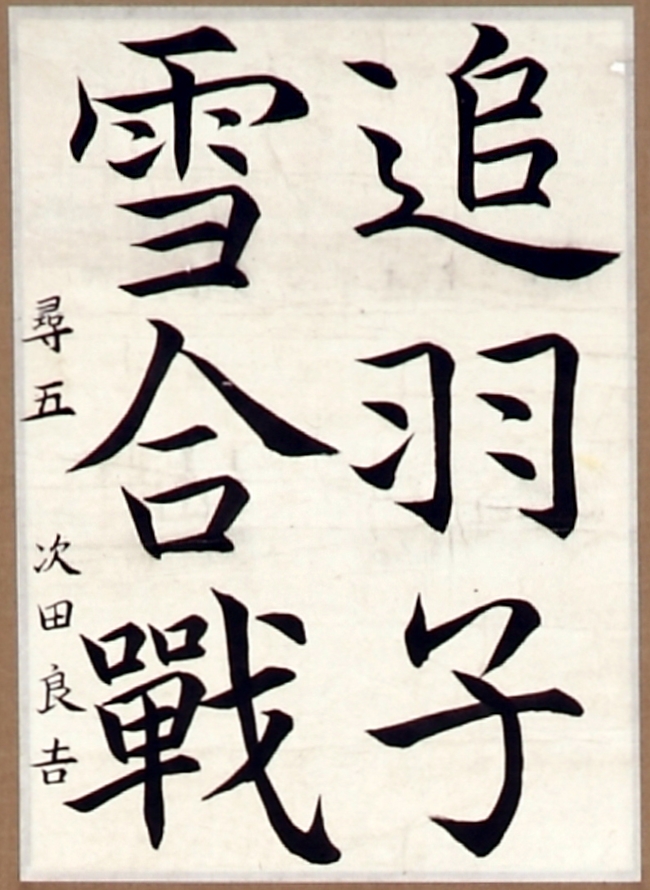 追羽子
雪合戰
尋五 次田良𠮷